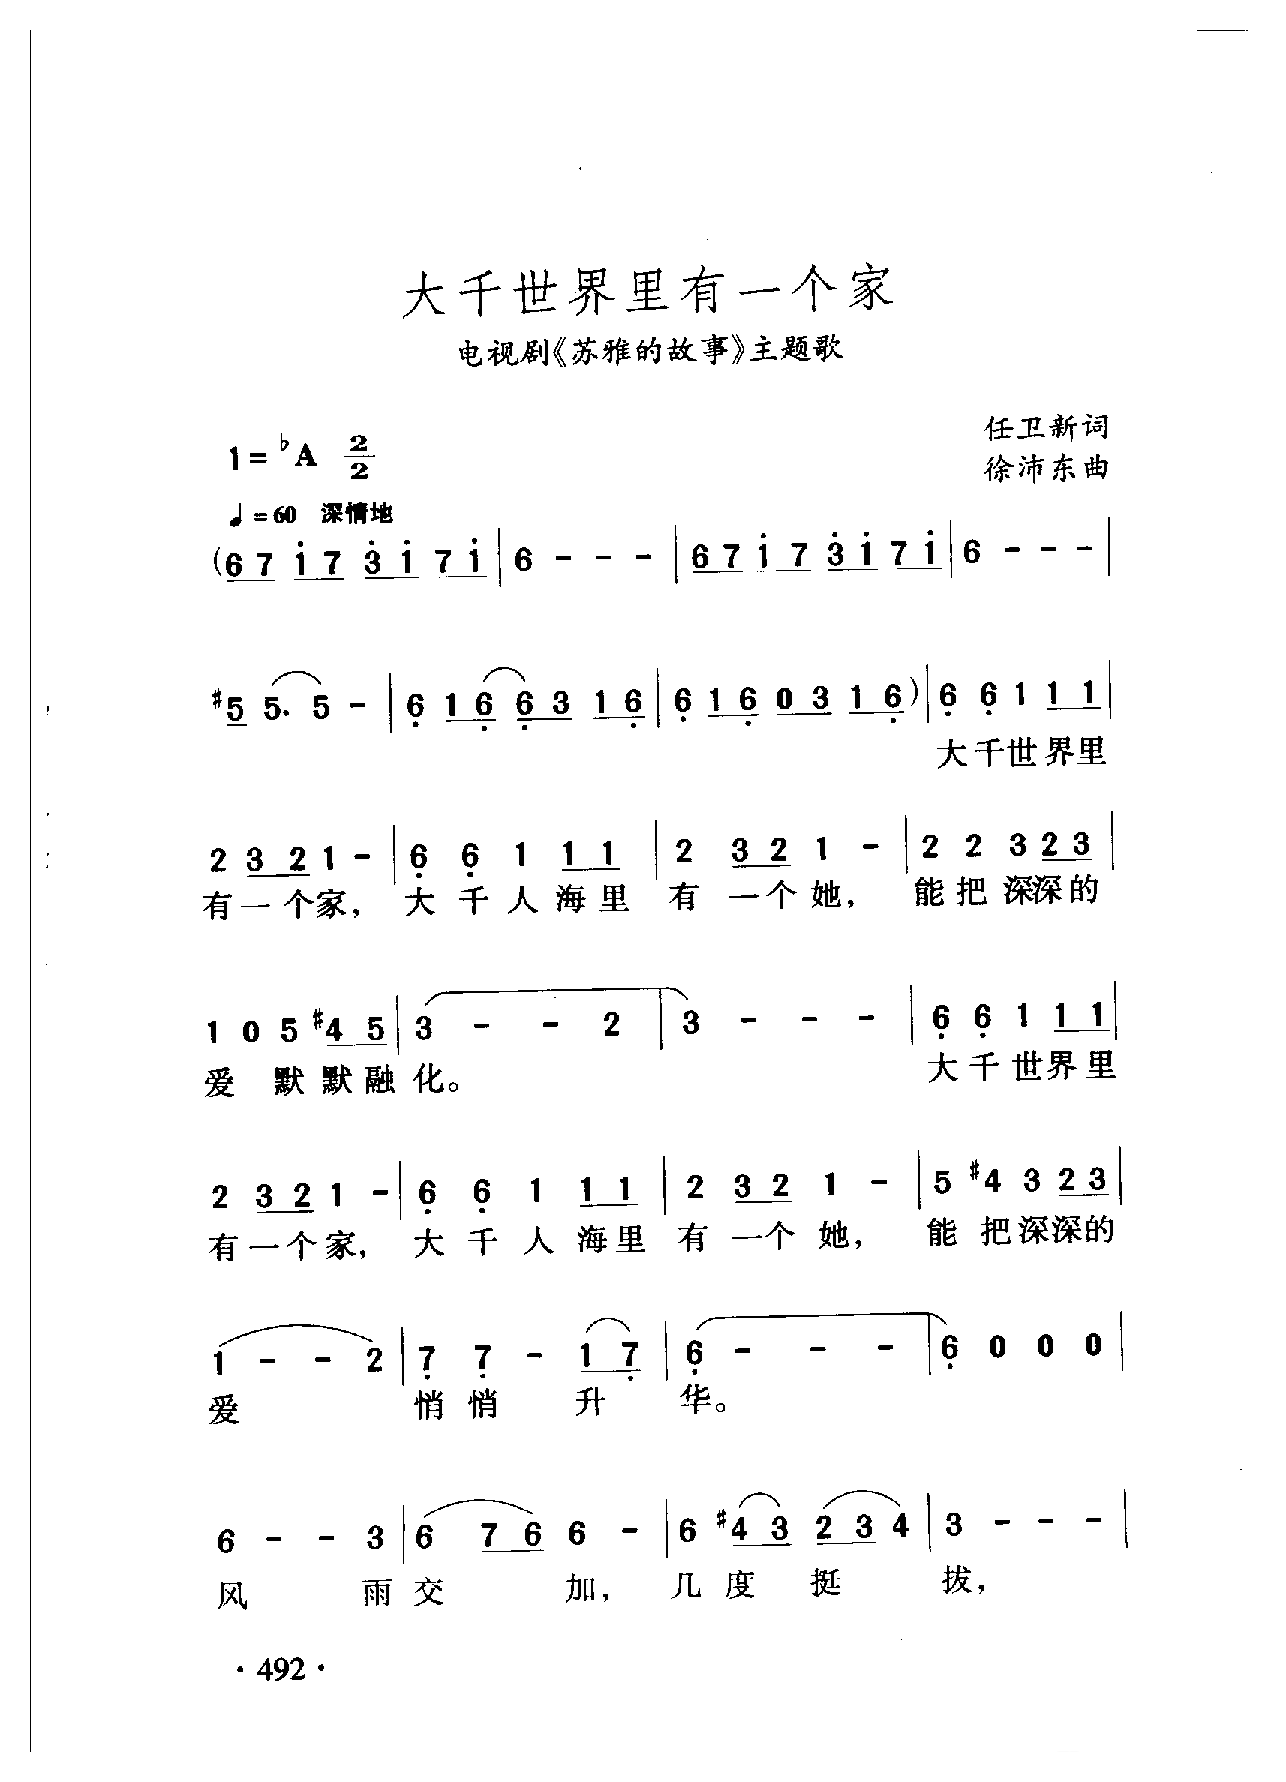 大千世界里有一个家
电视剧《苏雅的故事》主题歌
任卫新词
1=♭A 2/2
徐沛东曲
♩=60 深情地
(6 7 1̇ 7 3̇ 1̇ 7 1̇ | 6 - - - | 6 7 1̇ 7 3̇ 1̇ 7 1̇ | 6 - - - |
#5 5. 5 - | 6̣ 1 6̣ 6̣ 3 1 6̣ | 6̣ 1 6̣ 0 3 1 6̣) | 6̣ 6̣ 1 1 1 |
大千世界里
2 3 2 1 - | 6̣ 6̣ 1 1 1 | 2 3 2 1 - | 2 2 3 2 3 |
有一个家，大千人海里有一个她，能把深深的
1 0 5 #4 5 | 3 - - 2 | 3 - - - | 6̣ 6̣ 1 1 1 |
爱 默默融化。 大千世界里
2 3 2 1 - | 6̣ 6̣ 1 1 1 | 2 3 2 1 - | 5 #4 3 2 3 |
有一个家，大千人海里有一个她，能把深深的
1 - - 2 | 7̣ 7̣ - 1 7̣ | 6̣ - - - | 6̣ 0 0 0 |
爱 悄悄 升 华。
6 - - 3 | 6 7 6 6 - | 6 #4 3 2 3 4 | 3 - - - |
风 雨交 加，几度 挺 拔，
·492·